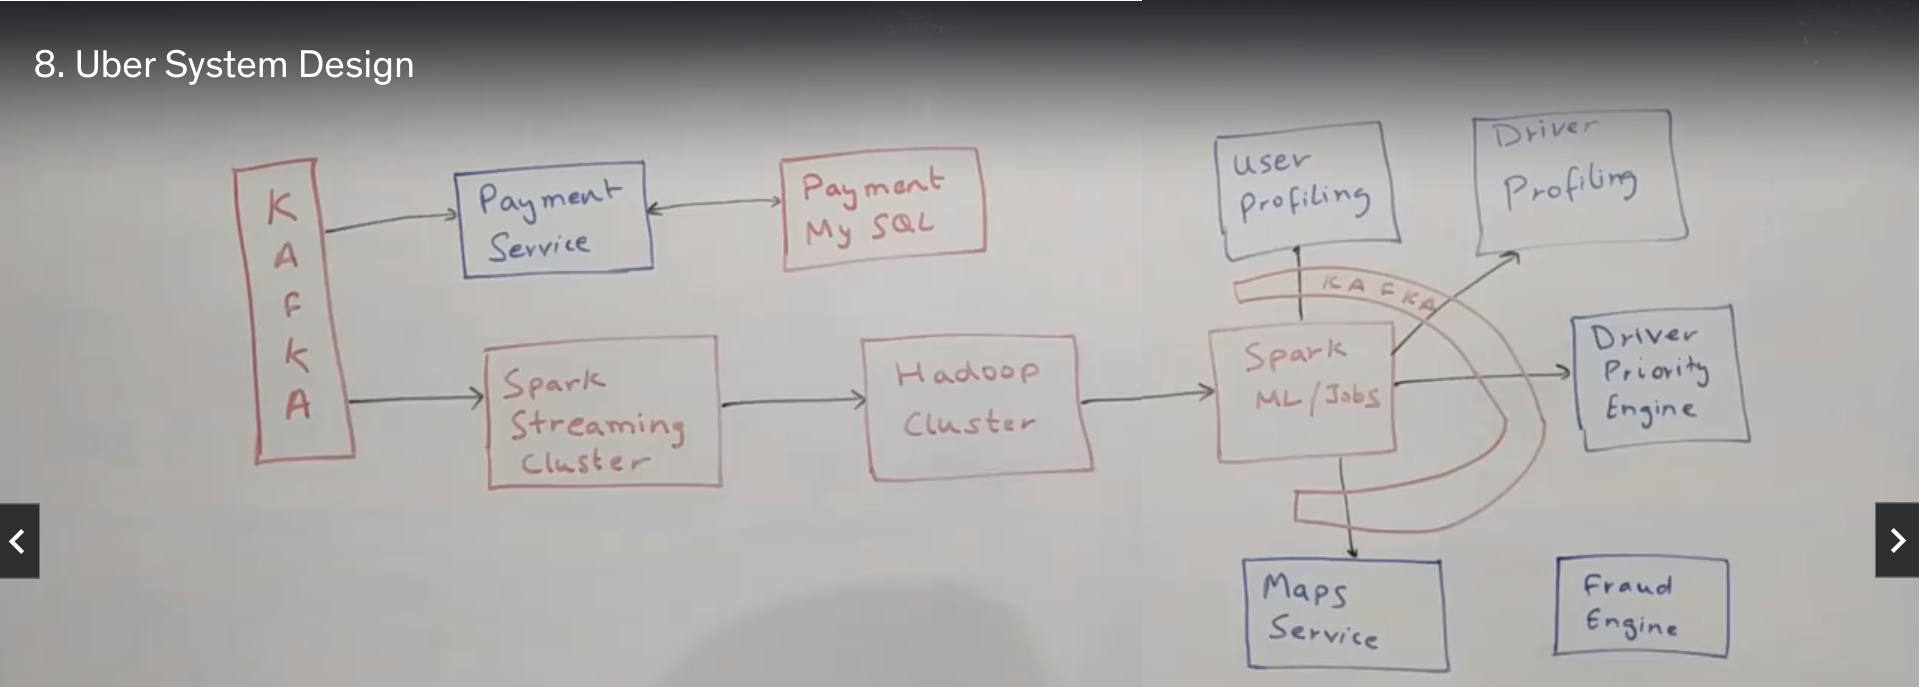 8. Uber System Design
K
A
F
K
A
Payment
Service
Payment
My SQL
Spark
Streaming
Cluster
Hadoop
Cluster
User
Profiling
Driver
Profiling
KAFKA
Spark
ML/Jobs
Driver
Priority
Engine
Maps
Service
Fraud
Engine